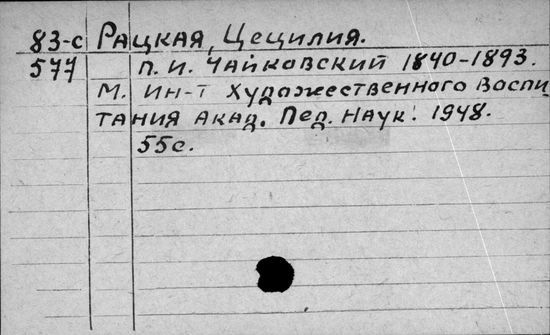 83-с Рацкая, Цецилия.
577 П. И. Чайковский 1840-1893.
М. Ин-т Художественного Воспи
тания Акад. Пед. Наук. 1948.
55с.